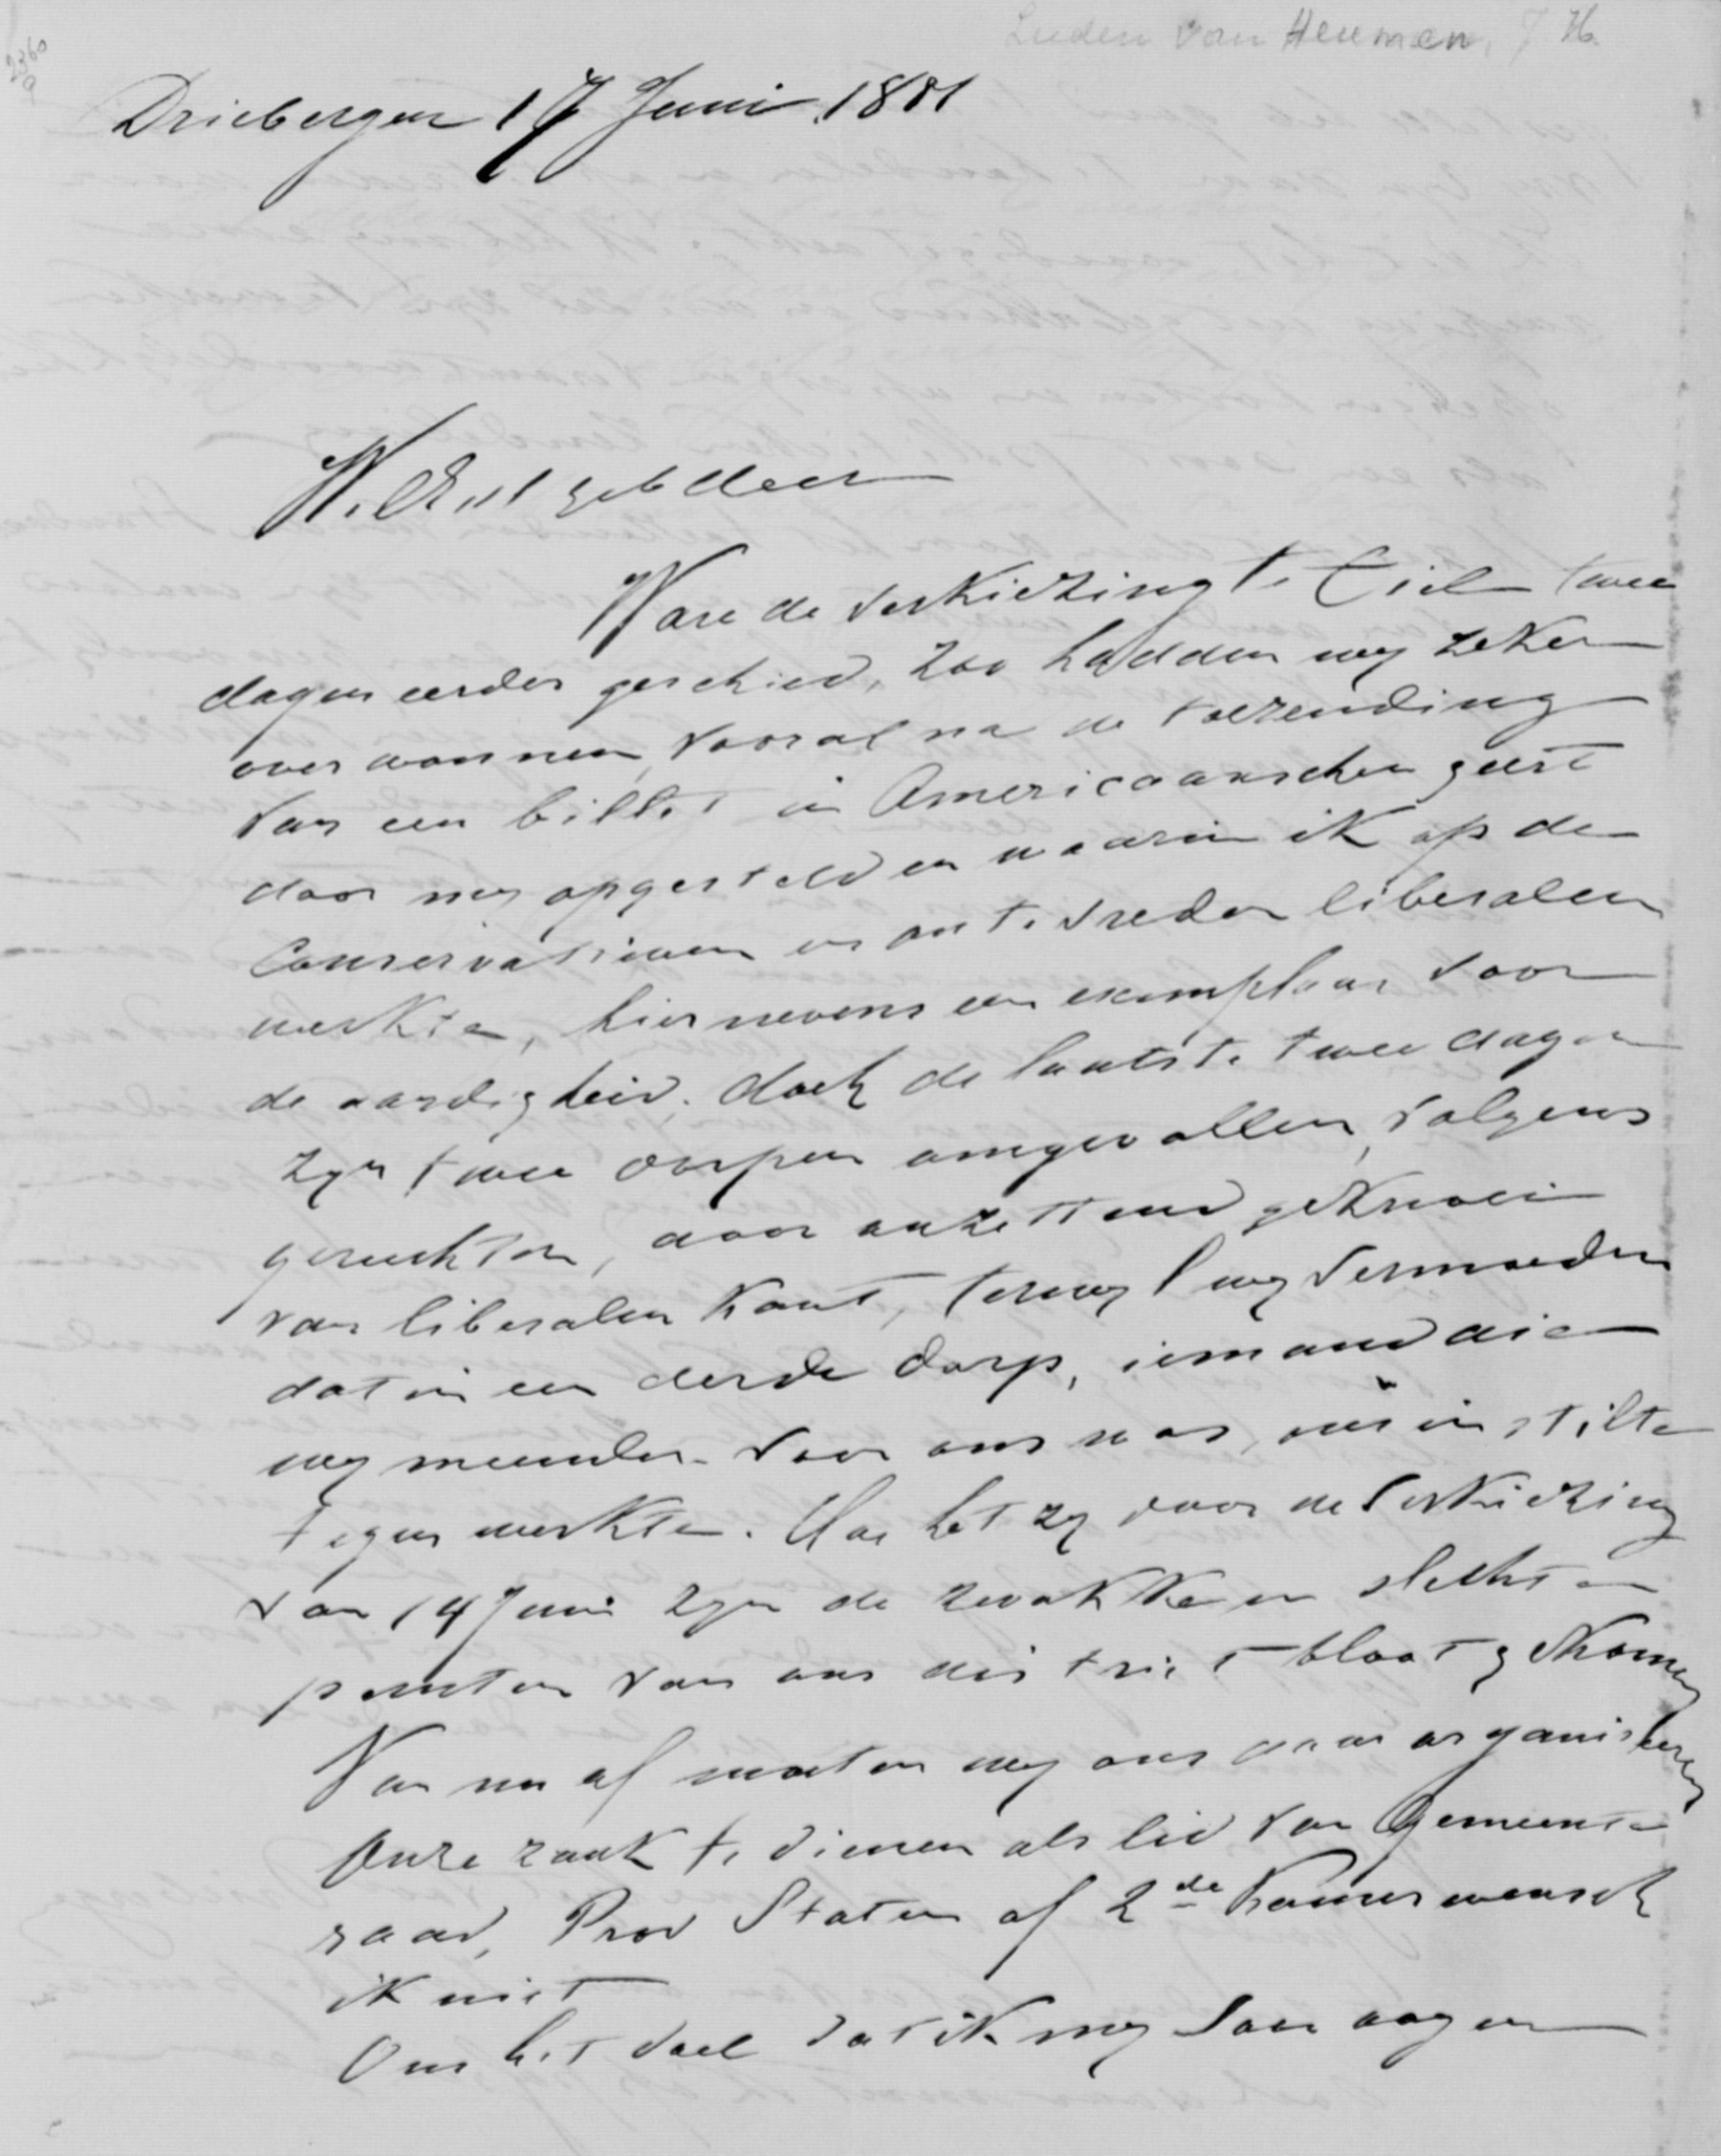 Luden van Heumen, J H.
2360
9
Driebergen 17 Juni 1881
W. Edel geb Heer
Ware de verkiezing te Tiel twee
dagen eerder geschied, zoo hadden wy zeker
overwonnen, vooral na de toezending
van een billet in Americaanschen geest
door my opgesteld en waarin ik op de
Conservatieven en ontevreden liberalen
werkte, hiernevens een exemplaar voor
de aardigheid, doch de laatste twee dagen
zyn twee dorpen omgevallen, volgens
geruchten, door ontzettend geknoei
van liberalen kant, terwyl wy vermoeden
dat in een derde dorp, iemand die
wy meenden voor ons was, ons in stilte
tegenwerkte. Hoe het zy door de verkiezing
van 14 Juni zyn de zwakke en slechte
punten van ons district bloot gekomen
Van nu af moeten wy ons gaan organiseren
Onze zaak te dienen als lid van Gemeente
raad, Prov Staten of 2de Kamer wensch
ik niet
Om het doel dat ik my voor oogen